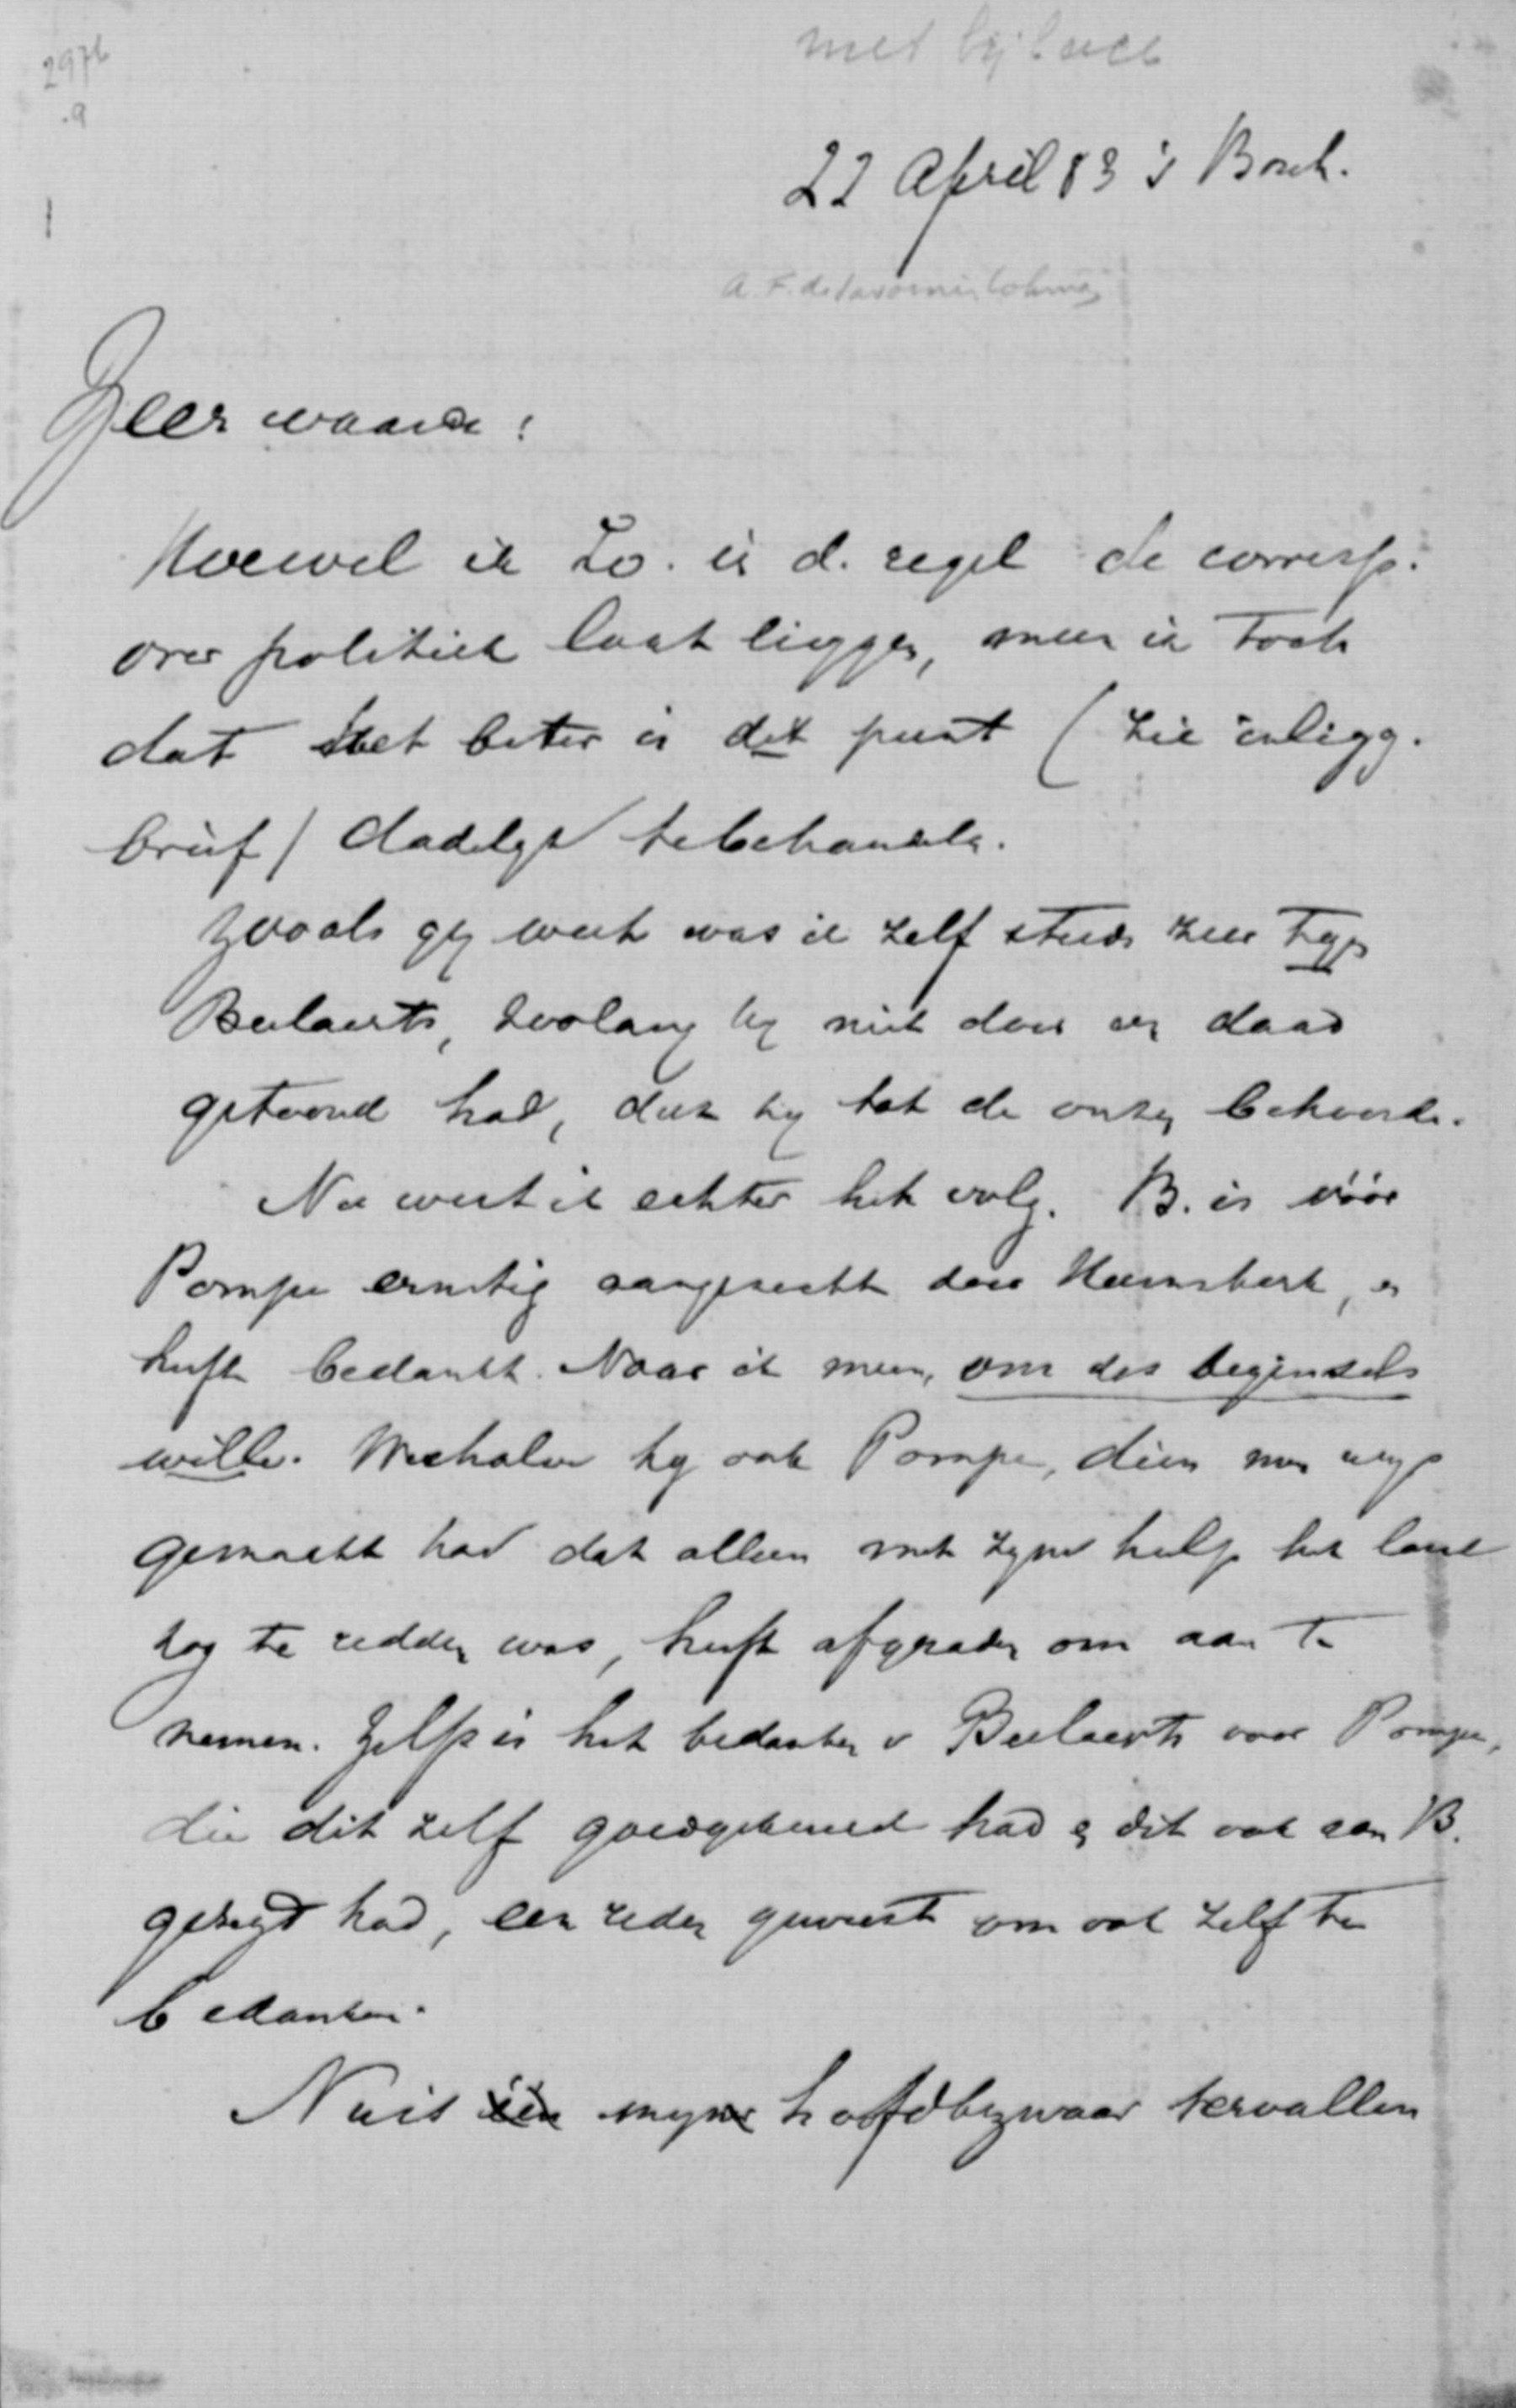 297b
.9
met bijlage
22 April 83 's Bosch.
A. F. de Savornin Lohman
Zeer waarde!
Hoewel ik Zo. in d. regel de corresp.
over politiek laat liggen, meen ik toch
dat het beter is dit punt (zie inligg.
brief) dadelyk te behandeln.
Zooals gy weet was ik zelf steeds zeer teg.
Beelaerts, zoolang hy niet door een daad
getoond had, dat hy tot de onzen behoorde.
Nu weet ik echter het volg. B. is vóór
Pompe ernstig aangezocht door Heemskerk, en
heeft bedankt. Naar ik meen, om des beginsels
wille. hy ook Pompe, dien men wys
gemaakt had dat alleen met zyne hulp het land
nog te redden was, heeft afgeraden om aan te
nemen. Zelfs is het bedanken v Beelaerts voor Pompe,
die dit zelf goedgekeurd had en dit ook aan B.
gezegd had, een reden geweest om ook zelf te
bedanken.
Nu is één myne hoofdbezwaar vervallen